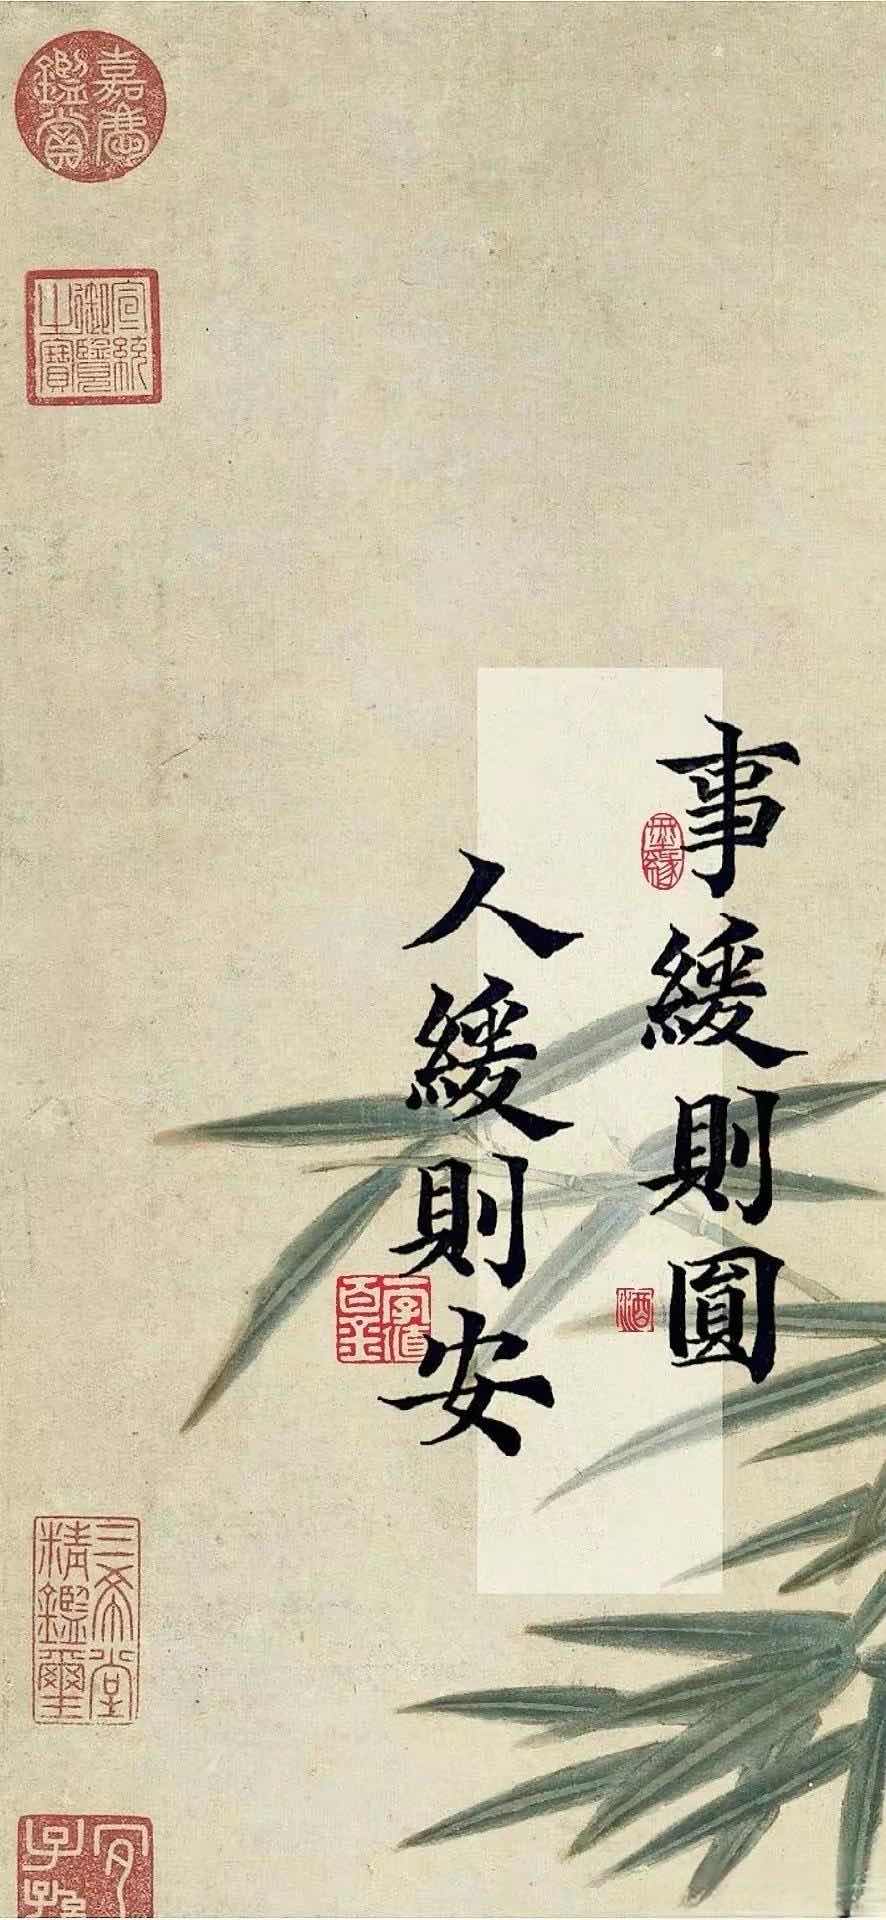 事緩則圓
人緩則安
嘉慶鑑賞
宣統御覽之寶
三希堂精鑑璽
宜子孫